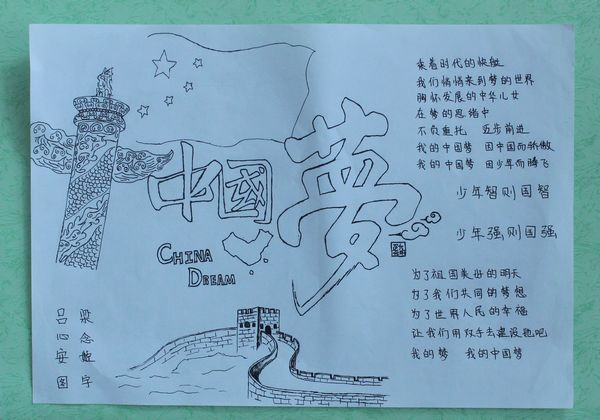 中國夢
CHINA
DREAM
乘着时代的快艇
我们悄悄来到梦的世界
胸怀发展的中华儿女
在梦的思绪中
不负重托 迈步前进
我的中国梦 因中国而骄傲
我的中国梦 因少年而腾飞
少年智则国智
少年强则国强
为了祖国美好的明天
为了我们共同的梦想
为了世界人民的幸福
让我们用双手去建设它吧
我的梦 我的中国梦
梁念 字
吕心安图